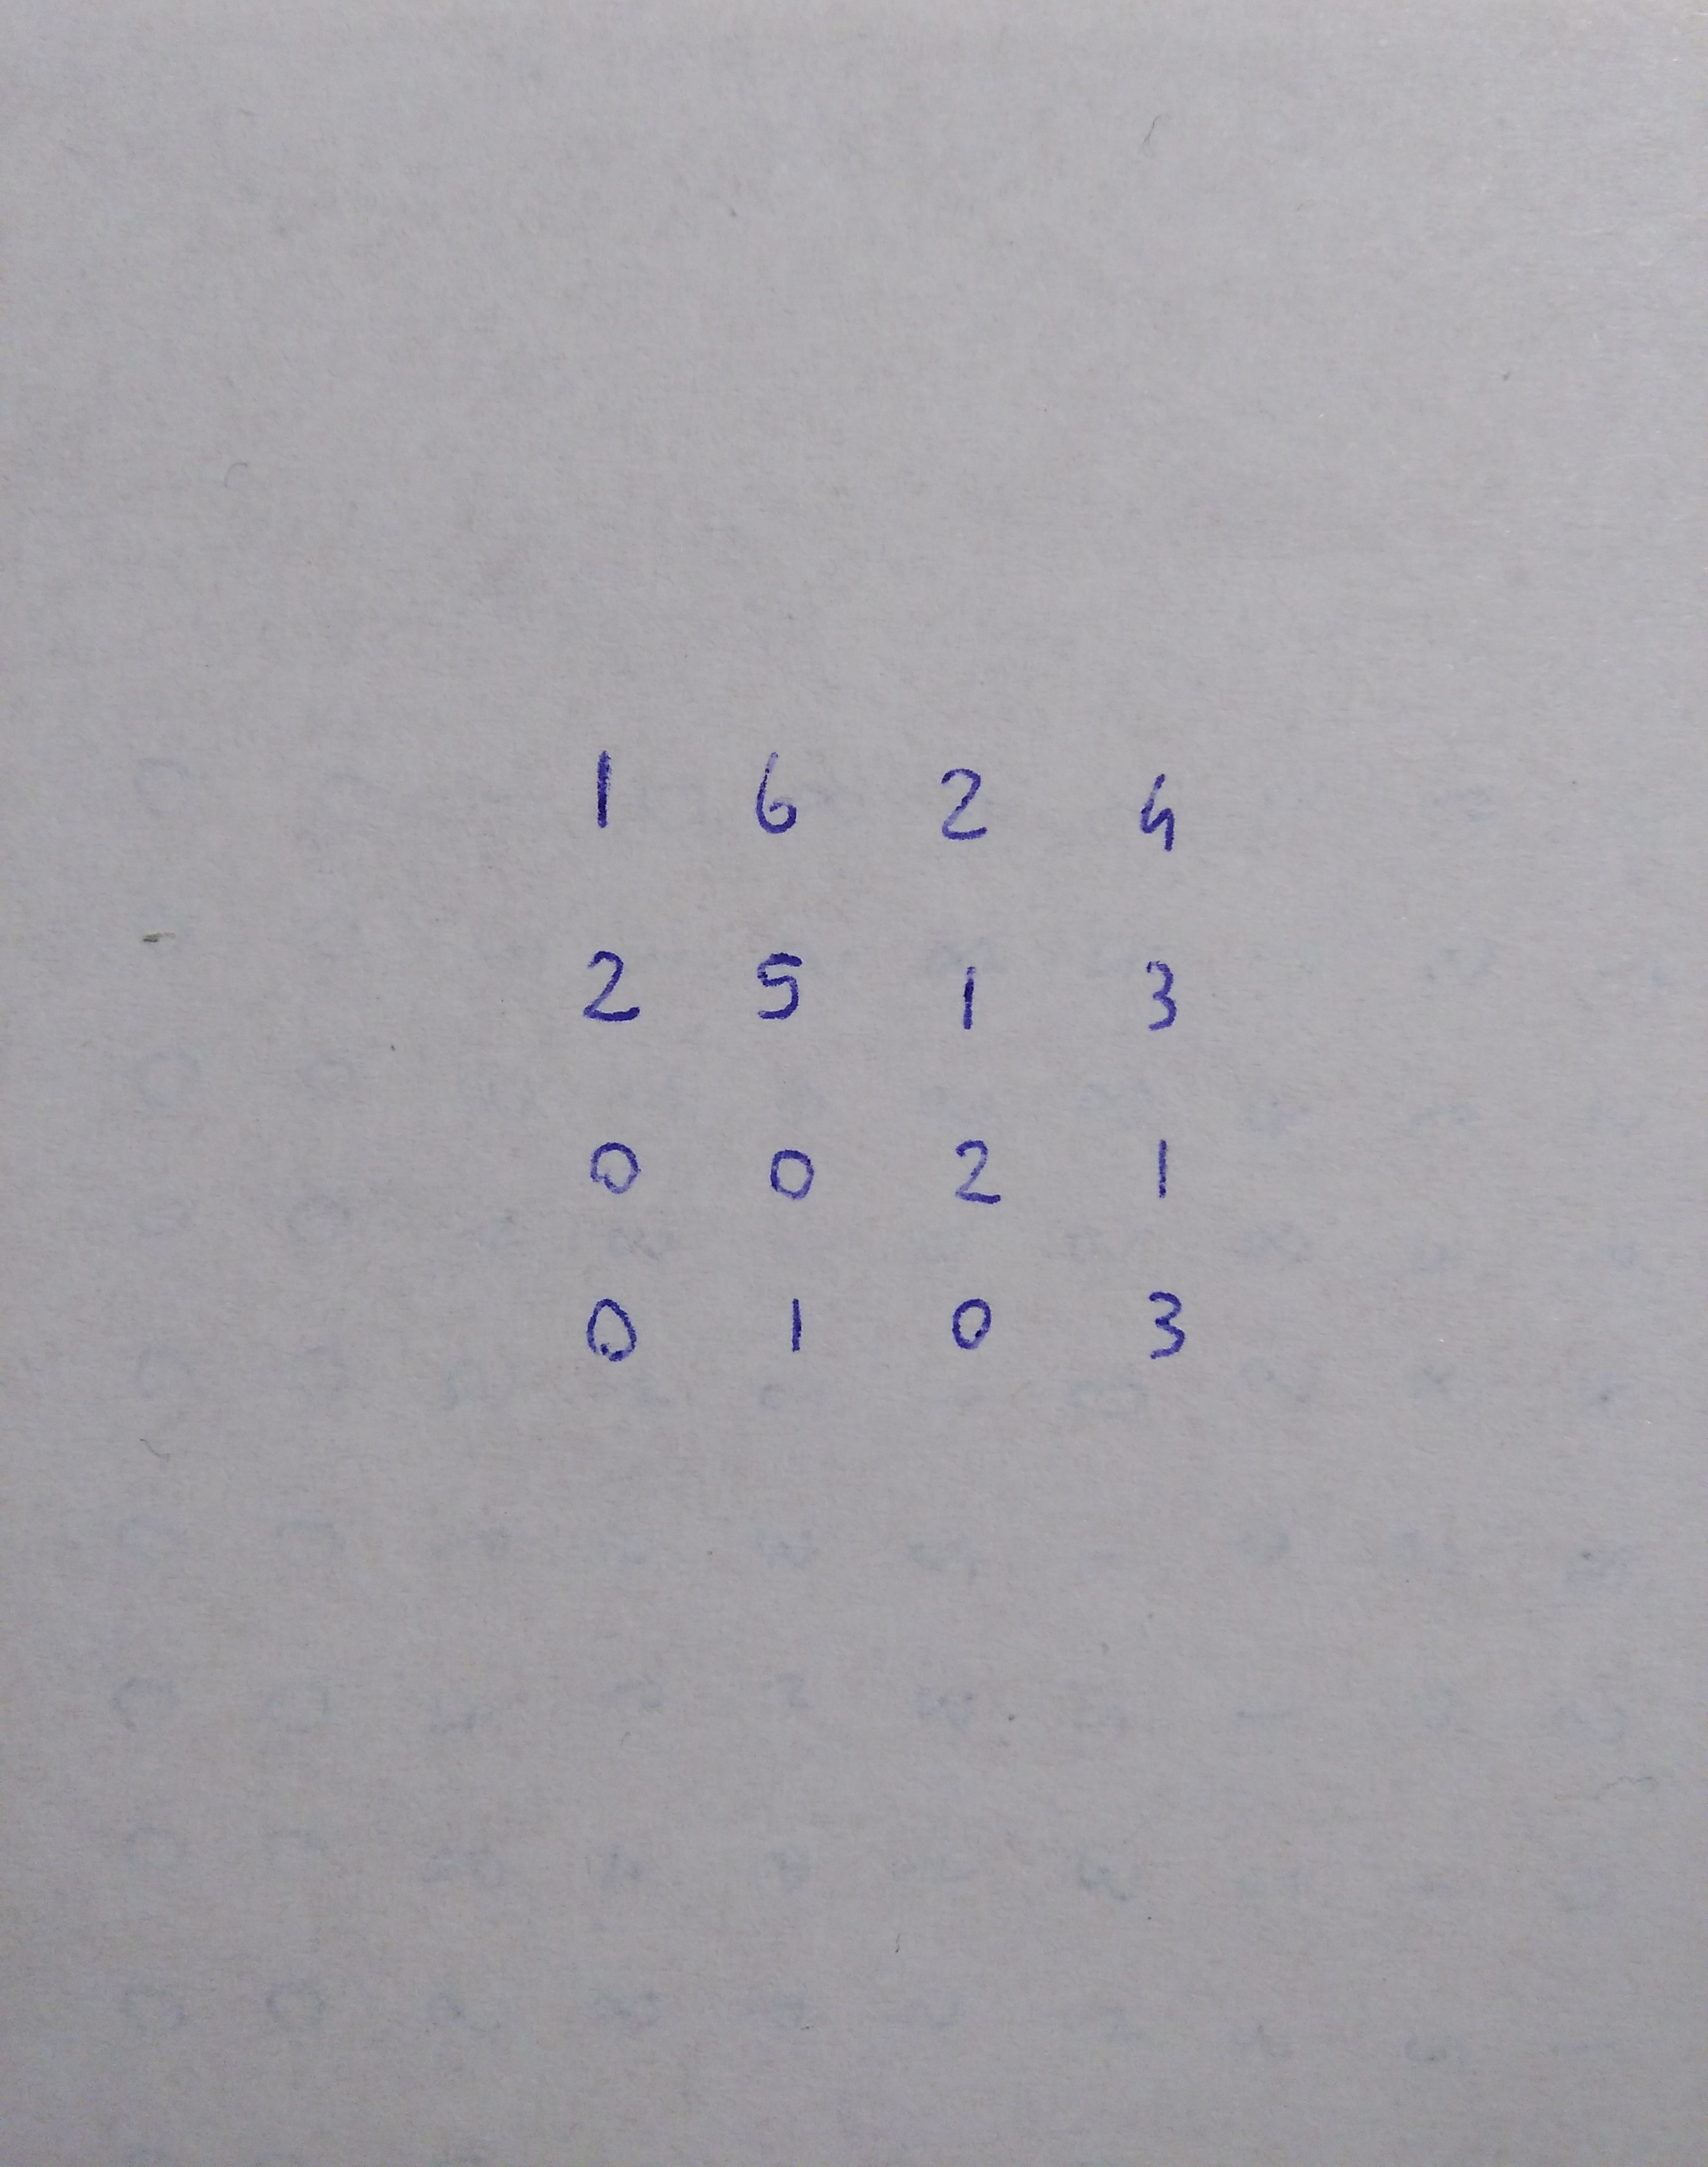 1 6 2 4
2 5 1 3
0 0 2 1
0 1 0 3